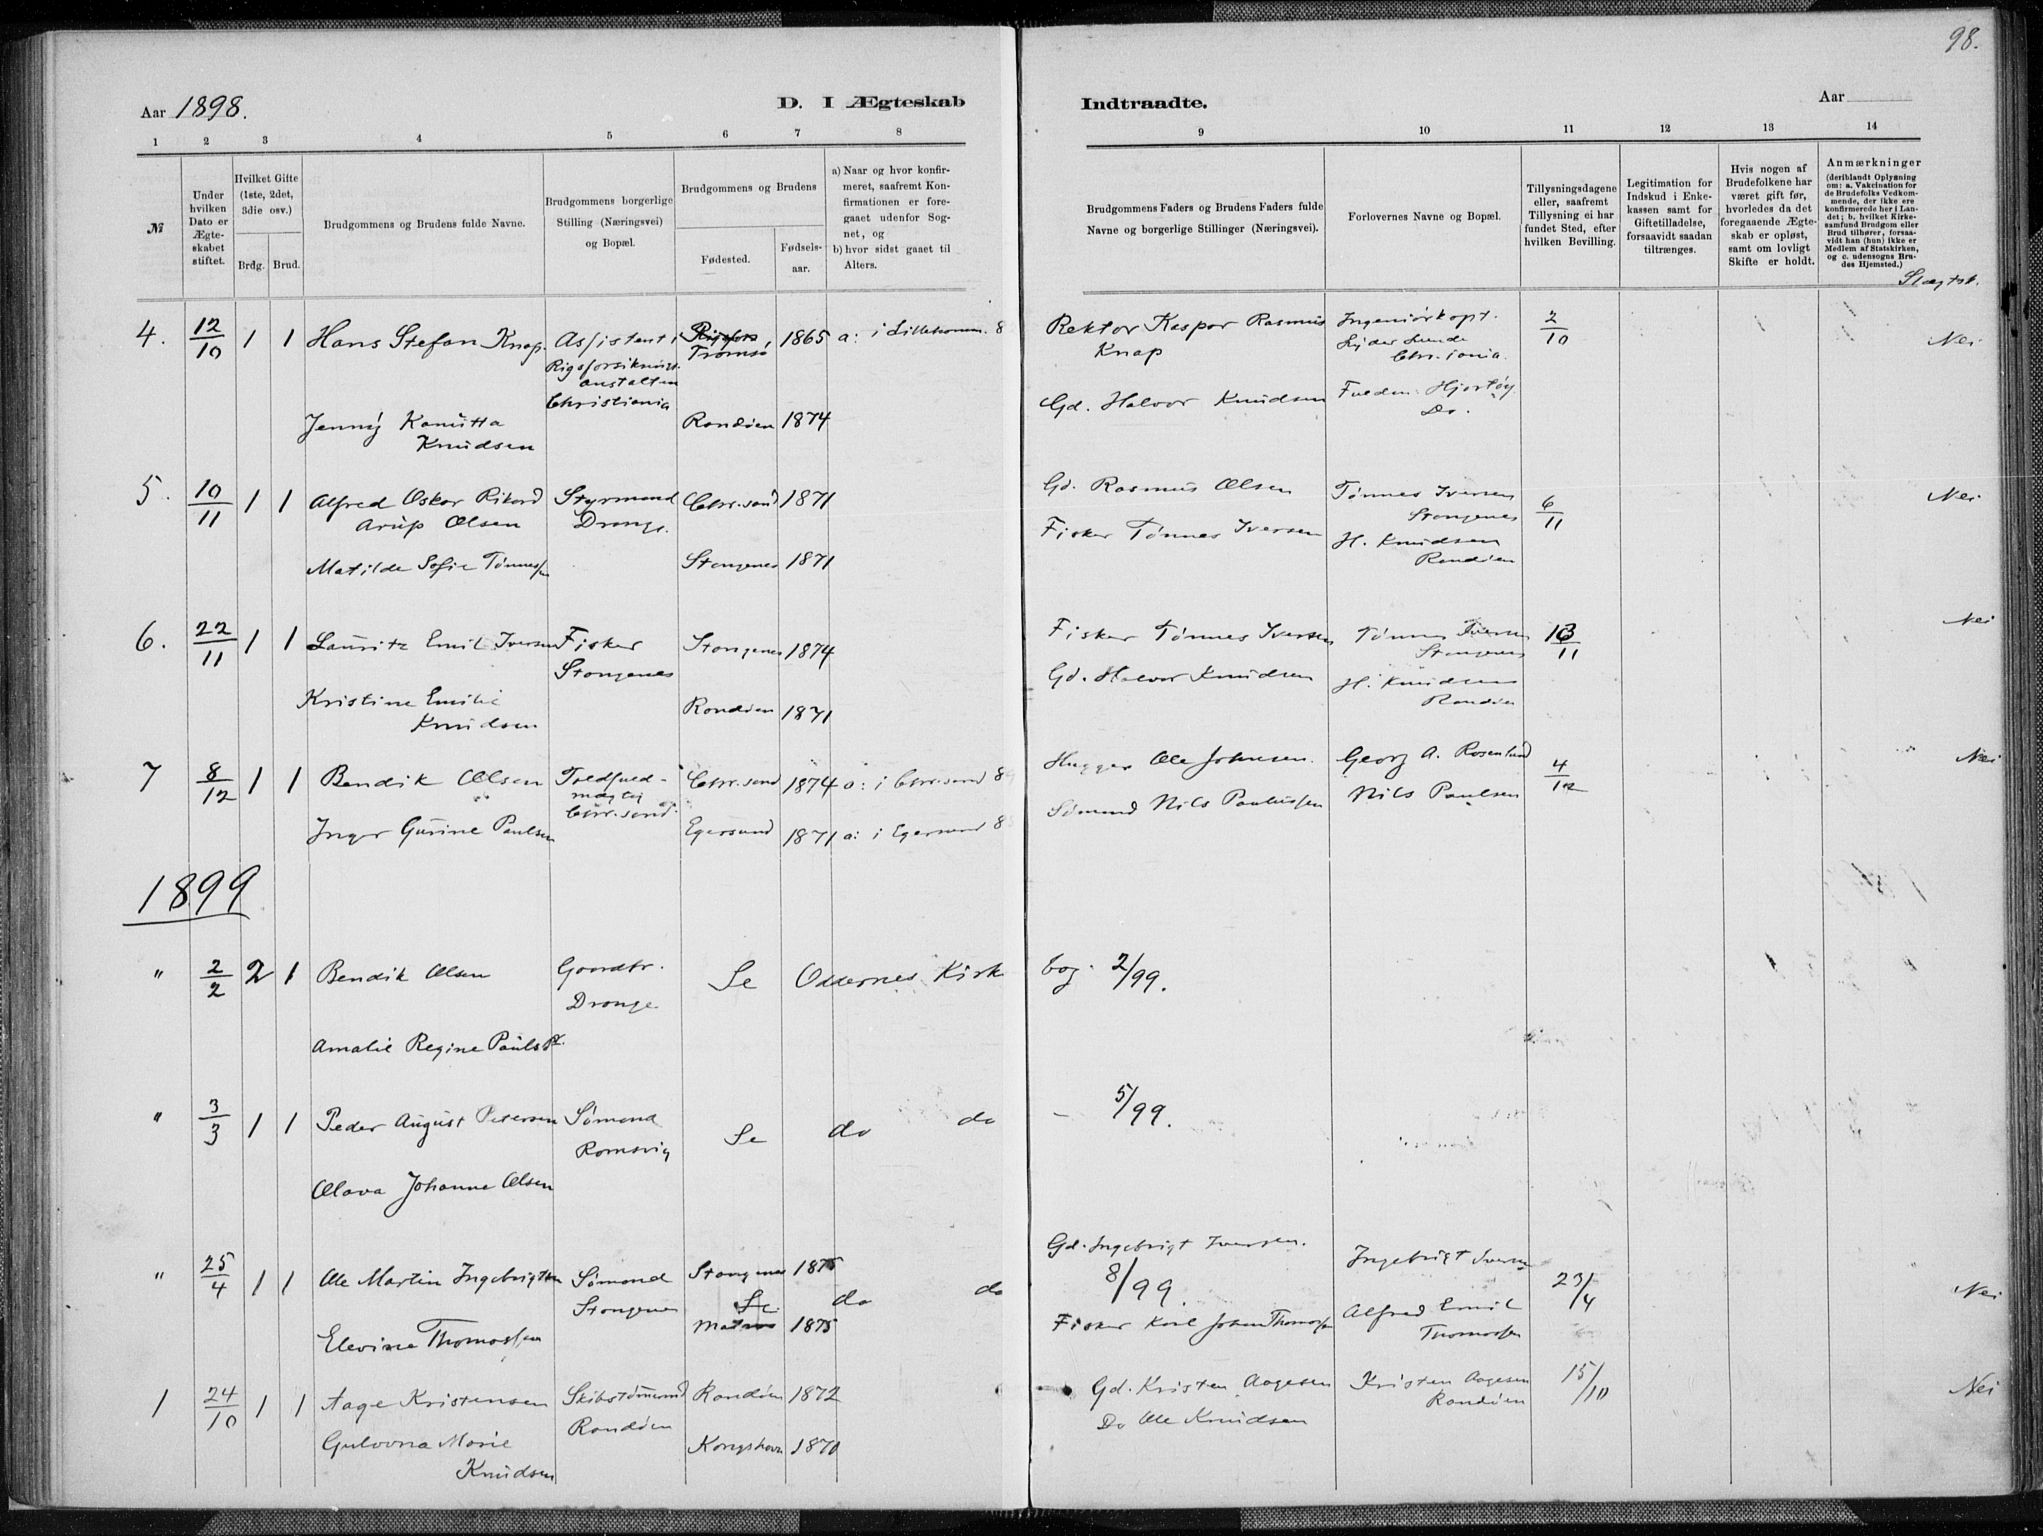 98.
Aar 1898.
D. I Ægteskab
Indtraadte.
Aar
1 2 3 4 5 6 7 8 9 10 11 12 13 14
№
Under
hvilken
Dato er
Ægte-
skabet
stiftet.
Hvilket Gifte
(1ste, 2det,
3die osv.)
Brdg. Brud.
Brudgommens og Brudens fulde Navne.
Brudgommens borgerlige
Stilling (Næringsvei)
og Bopæl.
Brudgommens og Brudens
Fødested.
Fødsels-
aar.
a) Naar og hvor konfir-
meret, saafremt Kon-
firmationen er fore-
gaaet udenfor Sog-
net, og
b) hvor sidst gaaet til
Alters.
Brudgommens Faders og Brudens Faders fulde
Navne og borgerlige Stillinger (Næringsvei).
Forlovernes Navne og Bopæl.
Tillysningsdagene
eller, saafremt
Tillysning ei har
fundet Sted, efter
hvilken Bevilling.
Legitimation for
Indskud i Enke-
kassen samt for
Giftetilladelse,
forsaavidt saadan
tiltrænges.
Hvis nogen af
Brudefolkene har
været gift før,
hvorledes da det
foregaaende Ægte-
skab er opløst,
samt om lovligt
Skifte er holdt.
Anmærkninger
(deriblandt Oplysning
om: a. Vakcination for
de Brudefolks Vedkom-
mende, der ikke ere
konfirmerede her i Lan-
det; b. hvilket Kirke-
samfund Brudgom eller
Brud tilhører, forsaa-
vidt han (hun) ikke er
Medlem af Statskirken,
og c. udensogns Bru-
des Hjemsted.)
Slægtsk.
4. 12/10 1 1 Hans Stefan Knap. Assistent i Tromsø 1865 a: i Lillehamm. 8
Rigsforsikrings-
anstalten
Christiania
Rektor Kaspar Rasmus Knap
Ingeniørkapt.
Lund
Chr.iania
2/10 Nei
Jenny Kamitta
Knudsen
Randøen 1874
Gd. Halvor Knudsen
Hjortøy
Do.
5. 10/11 1 1 Alfred Oskar Rikard
Arup Olsen
Styrmand
Drange.
Chr.sand 1871
Gd. Rasmus Olsen
Tønnes Iversen
Stangenes
6/11 Nei
Matilde Sofie Tønnessen
Stangenes 1871
Fisker Tønnes Iversen
H. Knudsen
Randøen
6. 22/11 1 1 Lauritz Emil Iversen
Fisker
Stangenes
Stangenes 1874
Fisker Tønnes Iversen
Tønnes Iversen
Stangenes
13/11 Nei
Kristine Emilie
Knudsen
Randøen 1871
Gd. Halvor Knudsen
H. Knudsen
Randøen
7 8/12 1 1 Bendik Olsen
Toldfuld-
mægtig
Chr.sand.
Chr.sand 1874 a: i Chr.sand 8
Hugger Ole Johnsen.
Georg A. Rosenlund
4/12 Nei
Inger Gurine Paulsen
Egersund 1871 a: i Egersund 8
Sømand Nils Paulussen
Nils Paulsen
1899
" 2/2 2 1 Bendik Olsen
Gaardbr.
Drange
Se Oddernes Kirk bog. 2/99.
Amalie Regine Pauls
" 3/3 1 1 Peder August Petersen
Sømand
Romsvig
Se do do – 5/99.
Olava Johanne Olsen
" 25/4 1 1 Ole Martin Ingebrigtsen
Sømand
Stangenes
Stangenes 1875
Gd. Ingebrigt Iversen.
Ingebrigt Iversen
23/4 Nei
Se do do 8/99.
Elevine Thomassen
1875
Fisker Karl Johan Thomassen
Alfred Emil
Thomassen
1 24/10 1 1 Aage Kristensen
Skibstømmermd
Randøen
Randøen 1872
Gd. Kristen Aagesen
Kristen Aagesen
Randøen
15/10 Nei
Gulovna Marie
Knudsen
Kongshavn 1870
Do Ole Knudsen